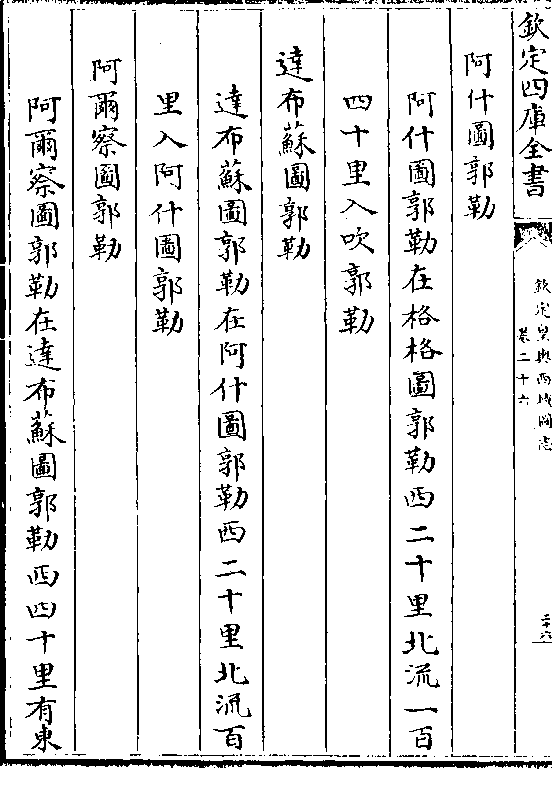 欽定四庫全書
欽定皇輿西域圖志
卷二十六
二十六
阿什圖郭勒
阿什圖郭勒在格格圖郭勒西二十里北流一百
四十里入吹郭勒
達布蘇圖郭勒
達布蘇圖郭勒在阿什圖郭勒西二十里北流百
里入阿什圖郭勒
阿爾察圖郭勒
阿爾察圖郭勒在達布蘇圖郭勒西四十里有東